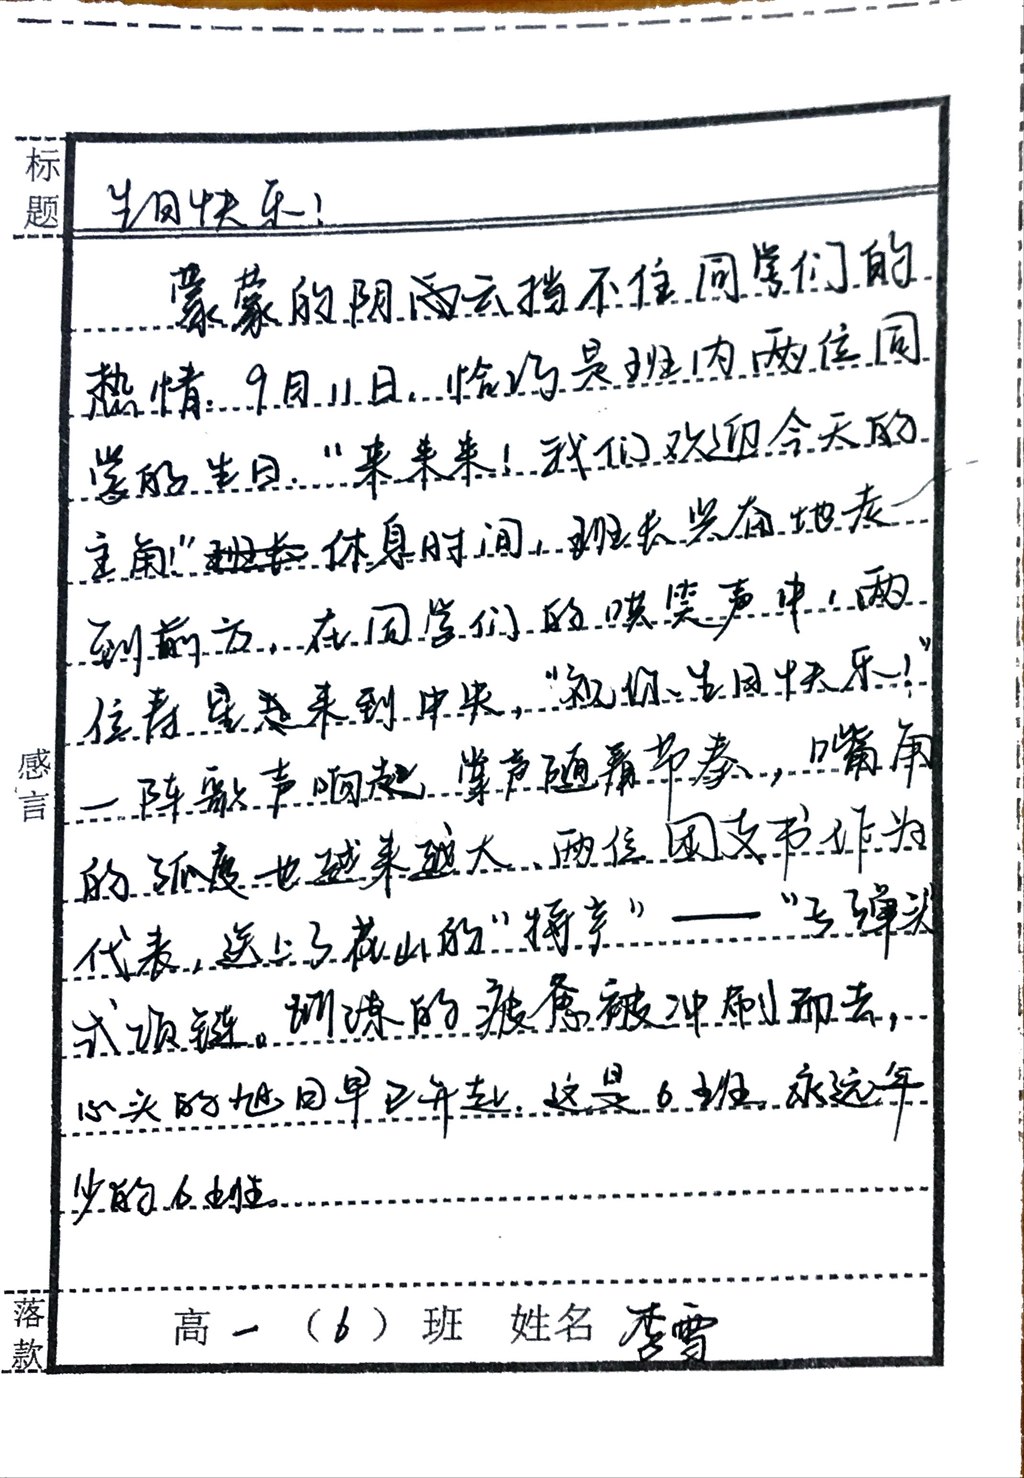 标题
生日快乐!
蒙蒙的阴雨云挡不住同学们的
热情.9月11日,恰巧是班内两位同
学的生日."来来来!我们欢迎今天的
主角!"班长休息时间,班长兴奋地走
到前方,在同学们的哄笑声中,两
位寿星来到中央,"祝你生日快乐!"
一阵歌声响起,掌声随着节奏,嘴角
的弧度也越来越大.两位团支书作为
代表,送上了在山的"特产"——"子弹头
式项链。训练的疲惫被冲刷而去,
心头的旭日早已升起.这是6班.永远年
少的6班。
感言
落款
高一(6)班 姓名 李雪